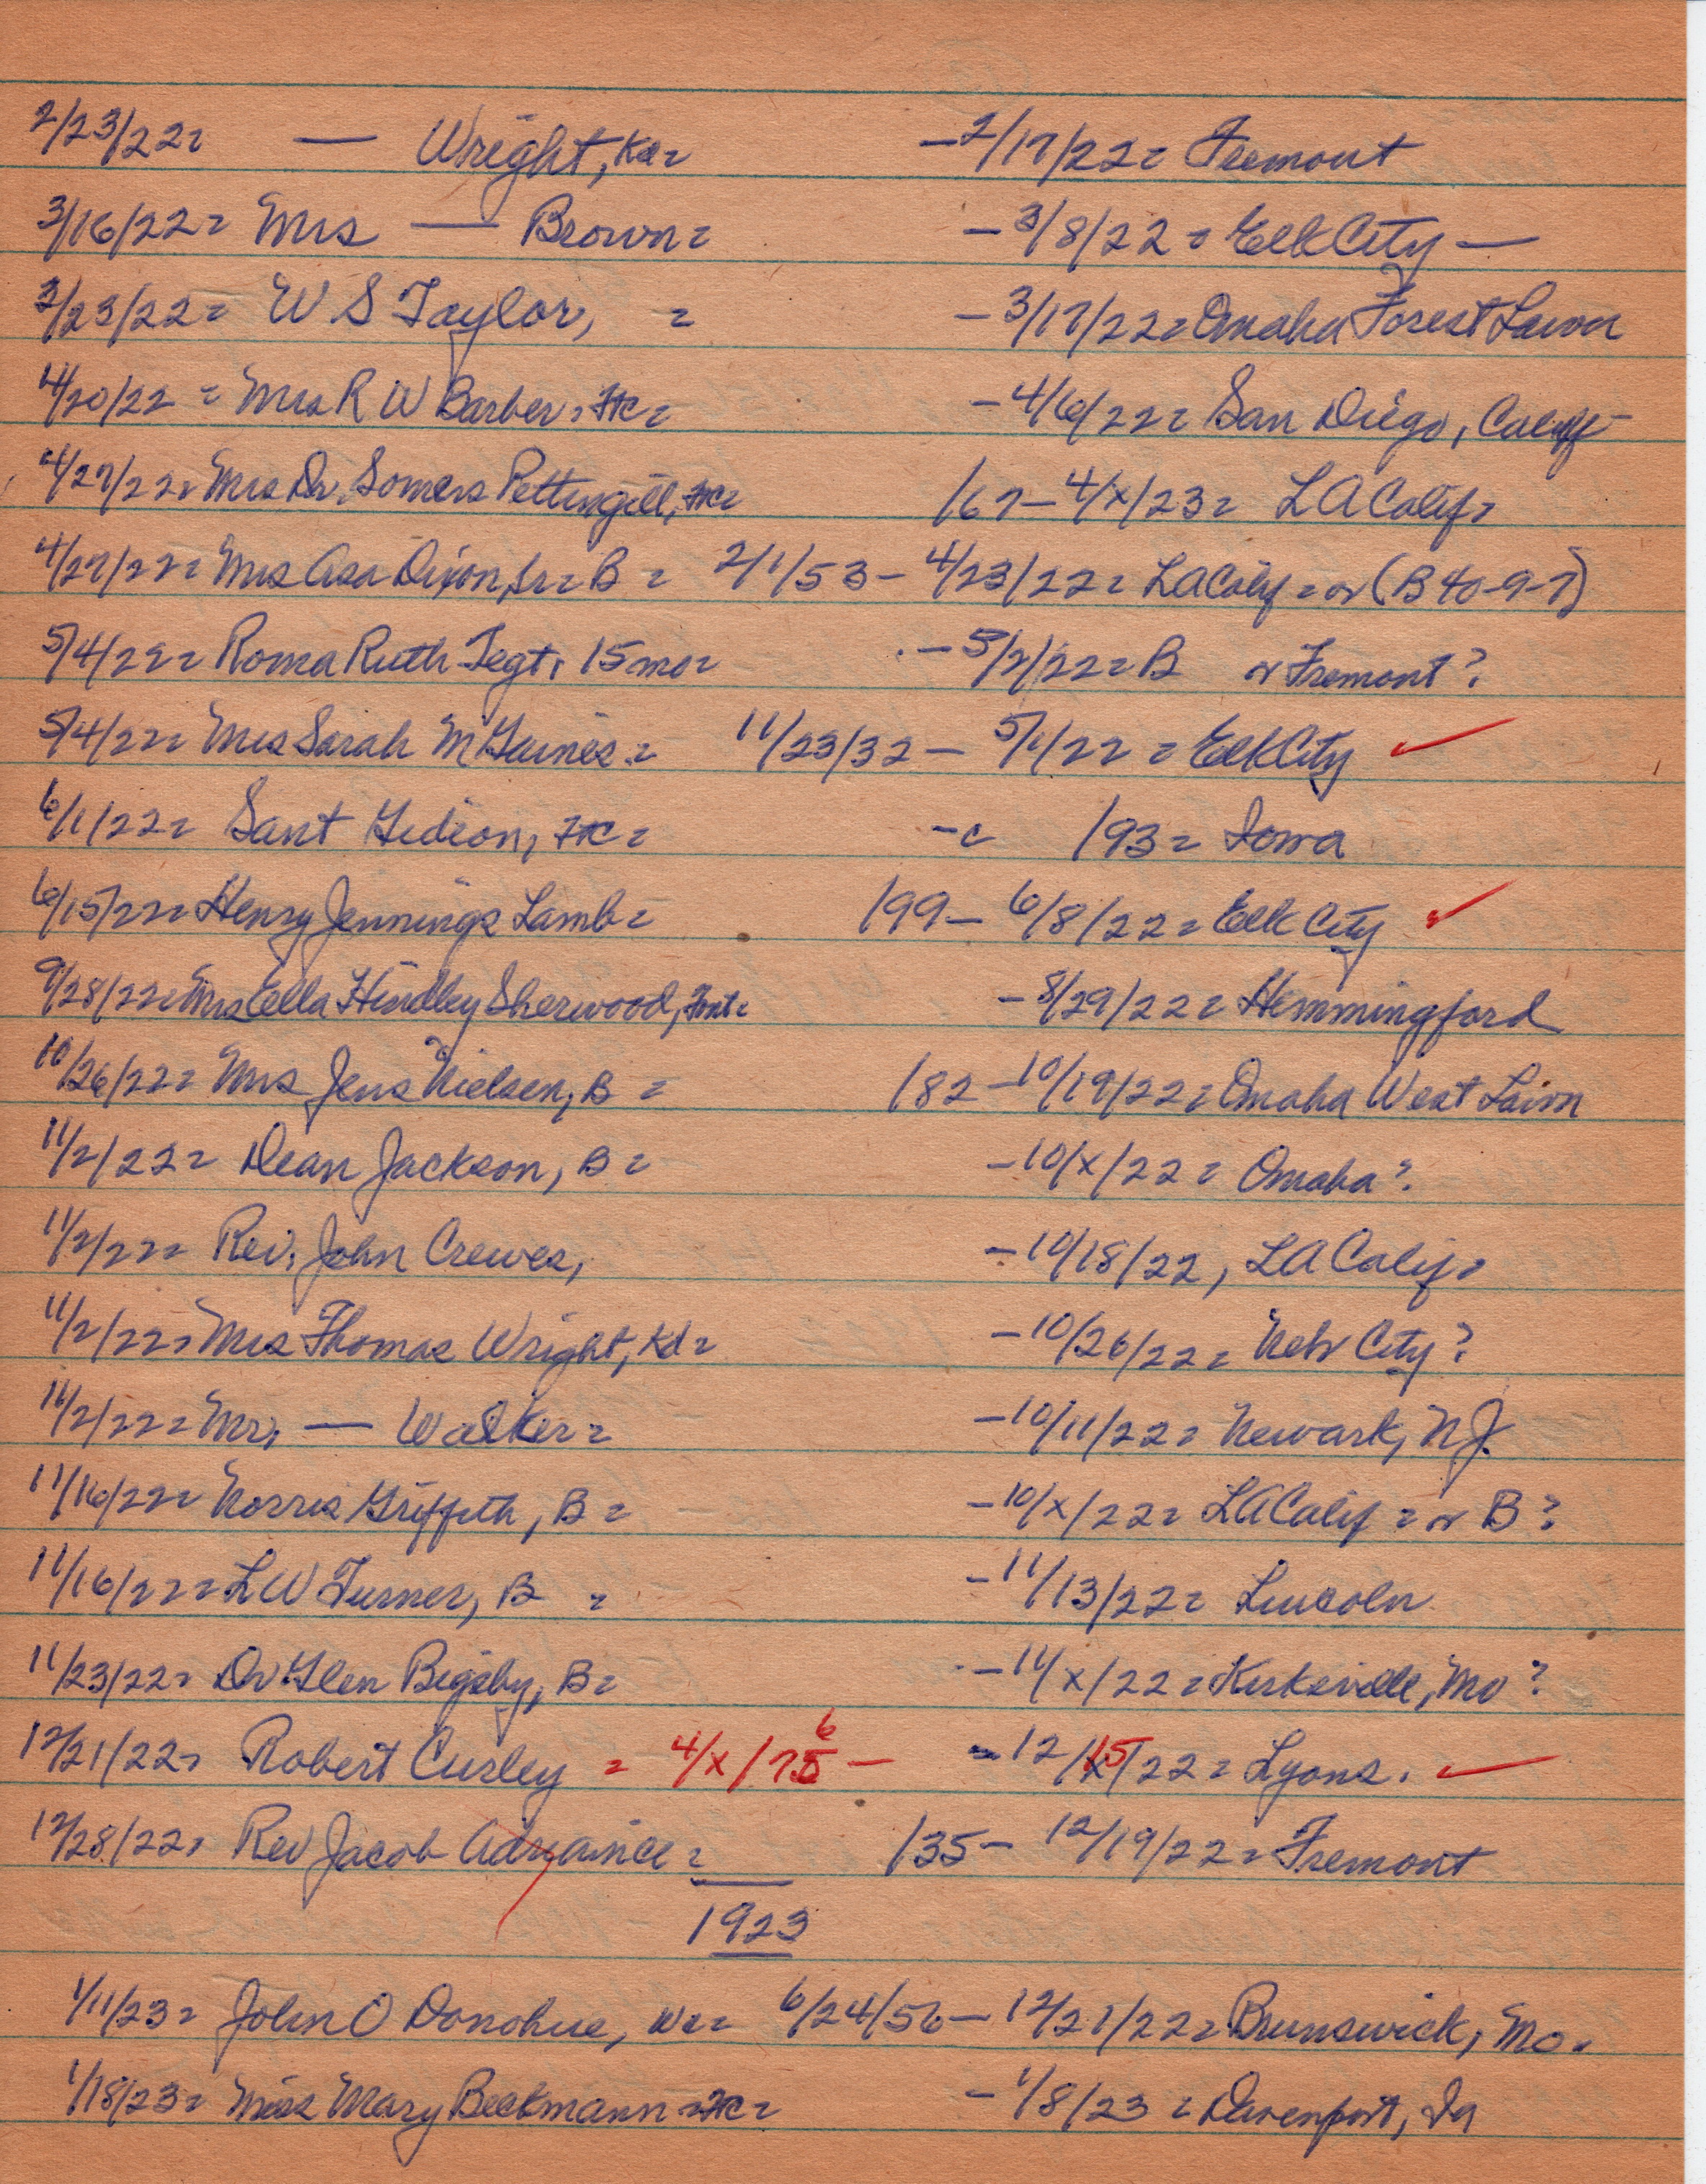 2/23/22 = — Wright, Kd = — 2/17/22 = Fremont
3/16/22 = Mrs — Brown = — 3/8/22 = Elk City —
3/23/22 = W S Taylor, = — 3/17/22 = Omaha Forest Lawn
4/20/22 = Mrs R W Barber, FtC = — 4/6/22 = San Diego, Calif
4/27/22 = Mrs Dr. Somers Pettingill, FtC = /67 — 4/x/23 = LA Calif =
4/27/22 = Mrs Asa Dixon, Sr = B = 2/1/53 — 4/23/22 = LA Calif = or (B 40-9-7)
5/4/22 = Roma Ruth Tegt, 15 mo = — 5/2/22 = B or Fremont?
5/4/22 = Mrs Sarah M Gaines = 11/23/32 — 5/1/22 = Elk City ✓
6/1/22 = Sant Gideon, FtC = — c /93 = Iowa
6/15/22 = Henry Jennings Lamb = /99 — 6/8/22 = Elk City ✓
9/28/22 = Mrs Ella Hindley Sherwood, Fmt = — 8/29/22 = Hemmingford
10/26/22 = Mrs Jens Nielsen, B = /82 — 10/19/22 = Omaha West Lawn
11/2/22 = Dean Jackson, B = — 10/x/22 = Omaha?
11/2/22 = Rev. John Crewes, — 10/18/22, LA Calif =
11/2/22 = Mrs Thomas Wright, Kd = — 10/26/22 = Nebr City?
11/2/22 = Mr. — Walker = — 10/11/22 = Newark, N J.
11/16/22 = Norris Griffith, B = — 10/x/22 = LA Calif = or B?
11/16/22 = L W Turner, B = — 11/13/22 = Lincoln
11/23/22 = Dr Glen Bigsby, B = — 11/x/22 = Kirksville, Mo?
12/21/22 = Robert Curley = 4/x/76 — — 12/15/22 = Lyons. ✓
12/28/22 = Rev Jacob Adriance = /35 — 12/19/22 = Fremont
1923
1/11/23 = John O Donohue, We = 6/24/56 — 12/21/22 = Brunswick, Mo.
1/18/23 = Miss Mary Beckmann = FtC = — 1/8/23 = Davenport, Ia